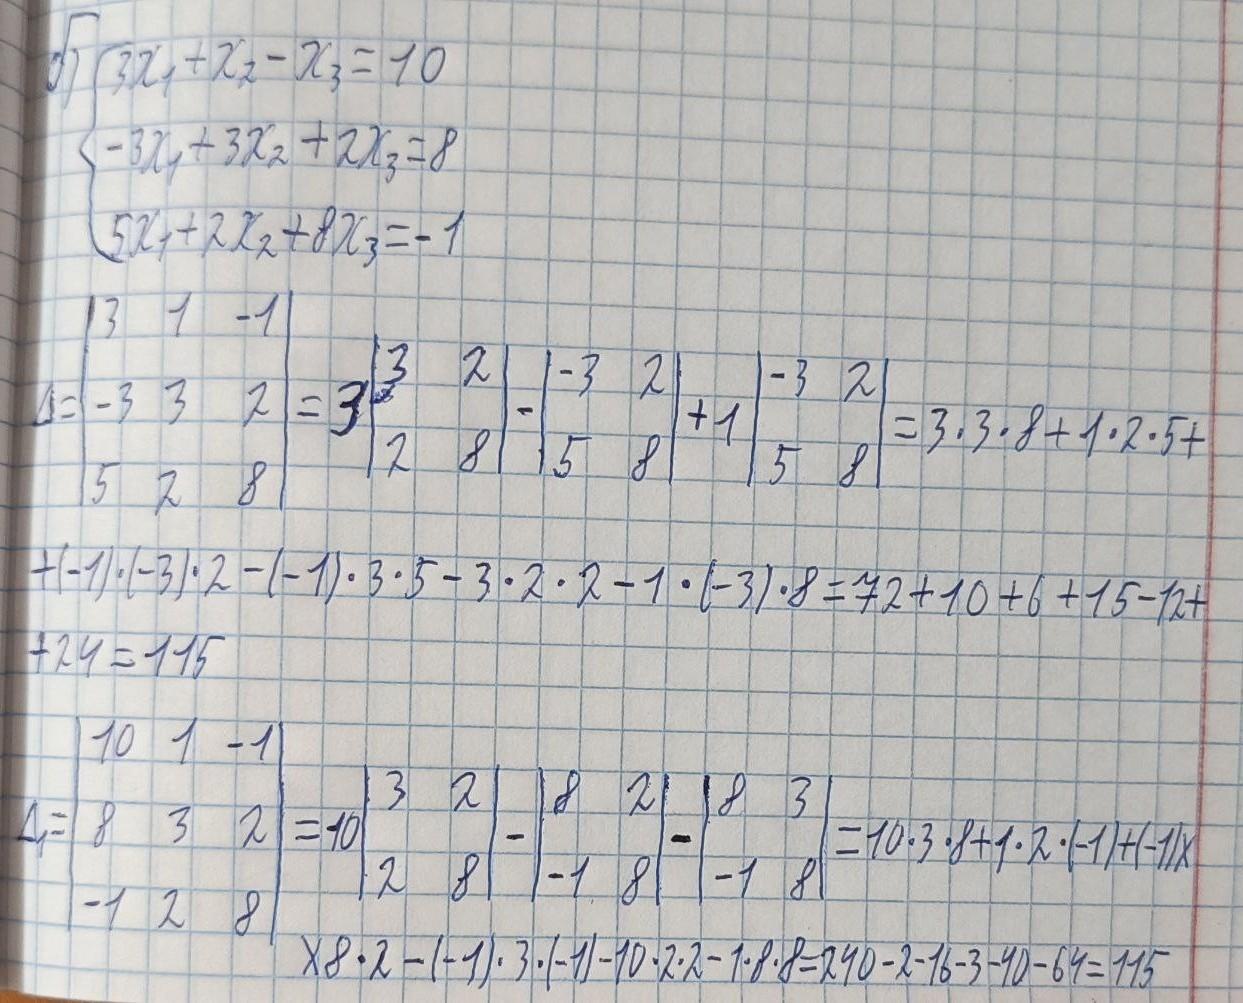 б) { 3x₁ + x₂ - x₃ = 10
-3x₁ + 3x₂ + 2x₃ = 8
5x₁ + 2x₂ + 8x₃ = -1
Δ = |3 1 -1; -3 3 2; 5 2 8| = 3 |3 2; 2 8| - |-3 2; 5 8| + 1 |-3 2; 5 8| = 3·3·8 + 1·2·5 +
+(-1)·(-3)·2 - (-1)·3·5 - 3·2·2 - 1·(-3)·8 = 72 + 10 + 6 + 15 - 12 +
+24 = 115
Δ₁ = |10 1 -1; 8 3 2; -1 2 8| = 10 |3 2; 2 8| - |8 2; -1 8| - |8 3; -1 8| = 10·3·8 + 1·2·(-1) + (-1)×
×8·2 - (-1)·3·(-1) - 10·2·2 - 1·8·8 = 240 - 2 - 16 - 3 - 40 - 64 = 115